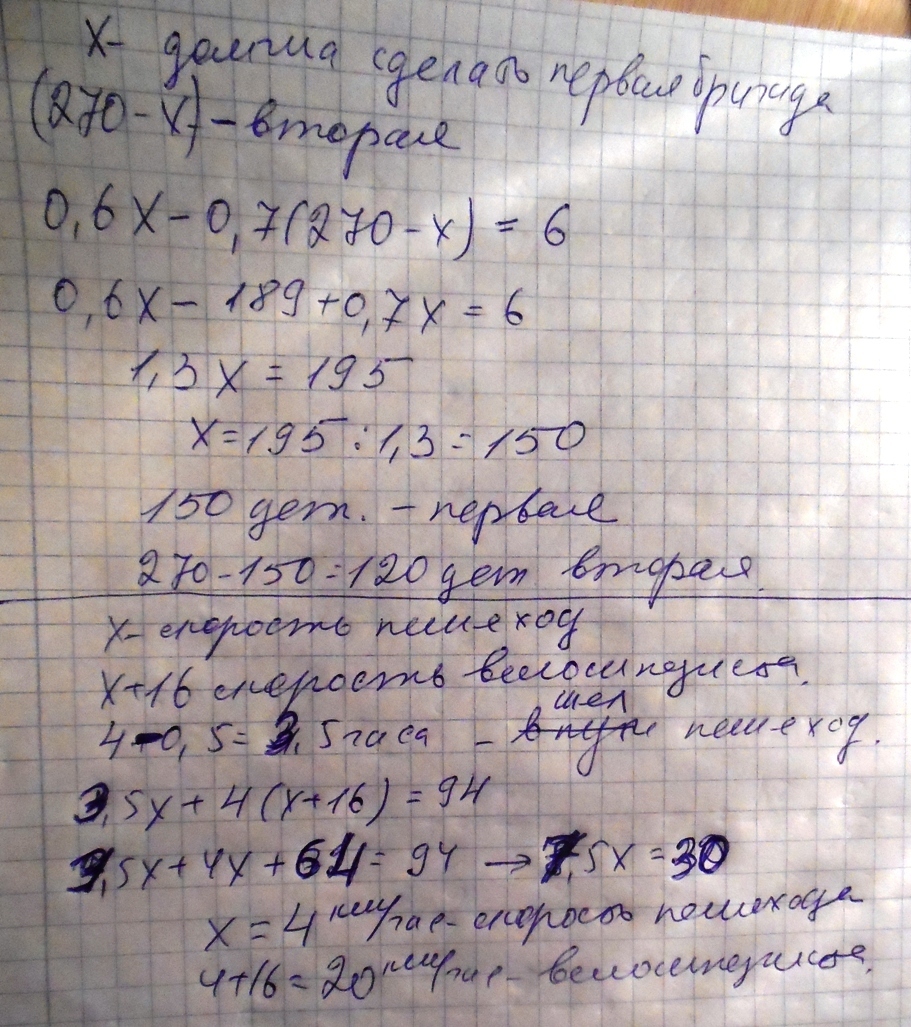 х- должна сделать первая бригада
(270-х)-вторая
0,6х-0,7(270-х)=6
0,6х-189+0,7х=6
1,3х=195
х=195:1,3=150
150 дет. - первая
270-150=120 дет вторая
х- скорость пешеход
х+16 скорость велосипедиста.
4-0,5=3,5часа - шел пешеход.
3,5х+4(х+16)=94
3,5х+4х+64=94 → 7,5х=30
х=4 км/час-скорость пешехода
4+16=20 км/час- велосипедиста.